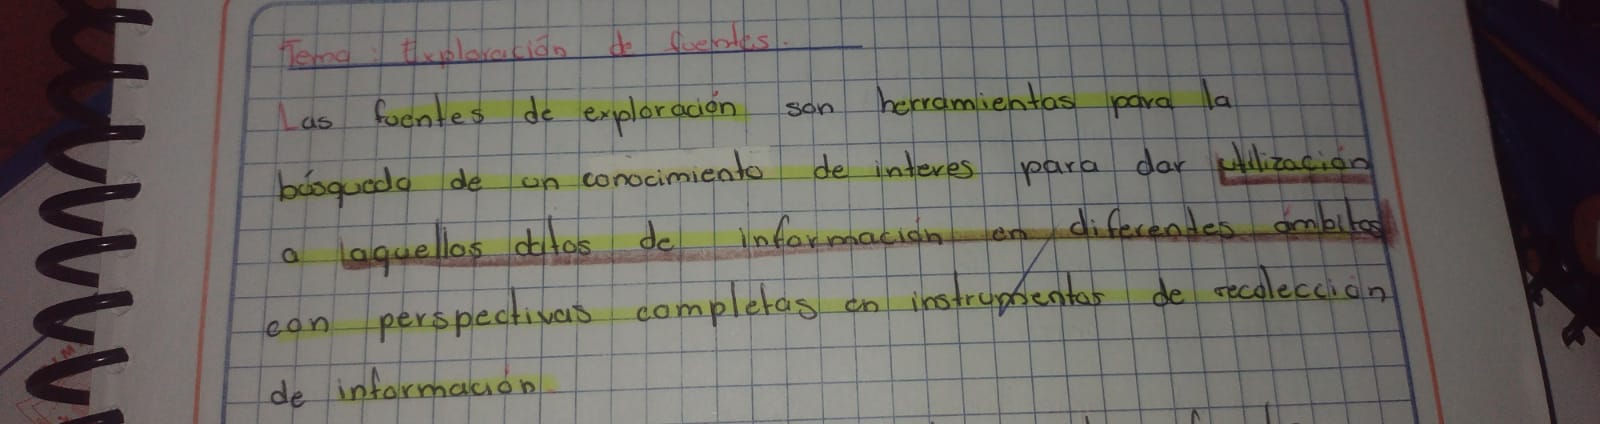 Tema: Exploración de fuentes.
Las fuentes de exploración son herramientas para la
búsqueda de un conocimiento de interes para dar utilización
a aquellos datos de información en diferentes ámbitos
con perspectivas completas en instrumentos de recolección
de información